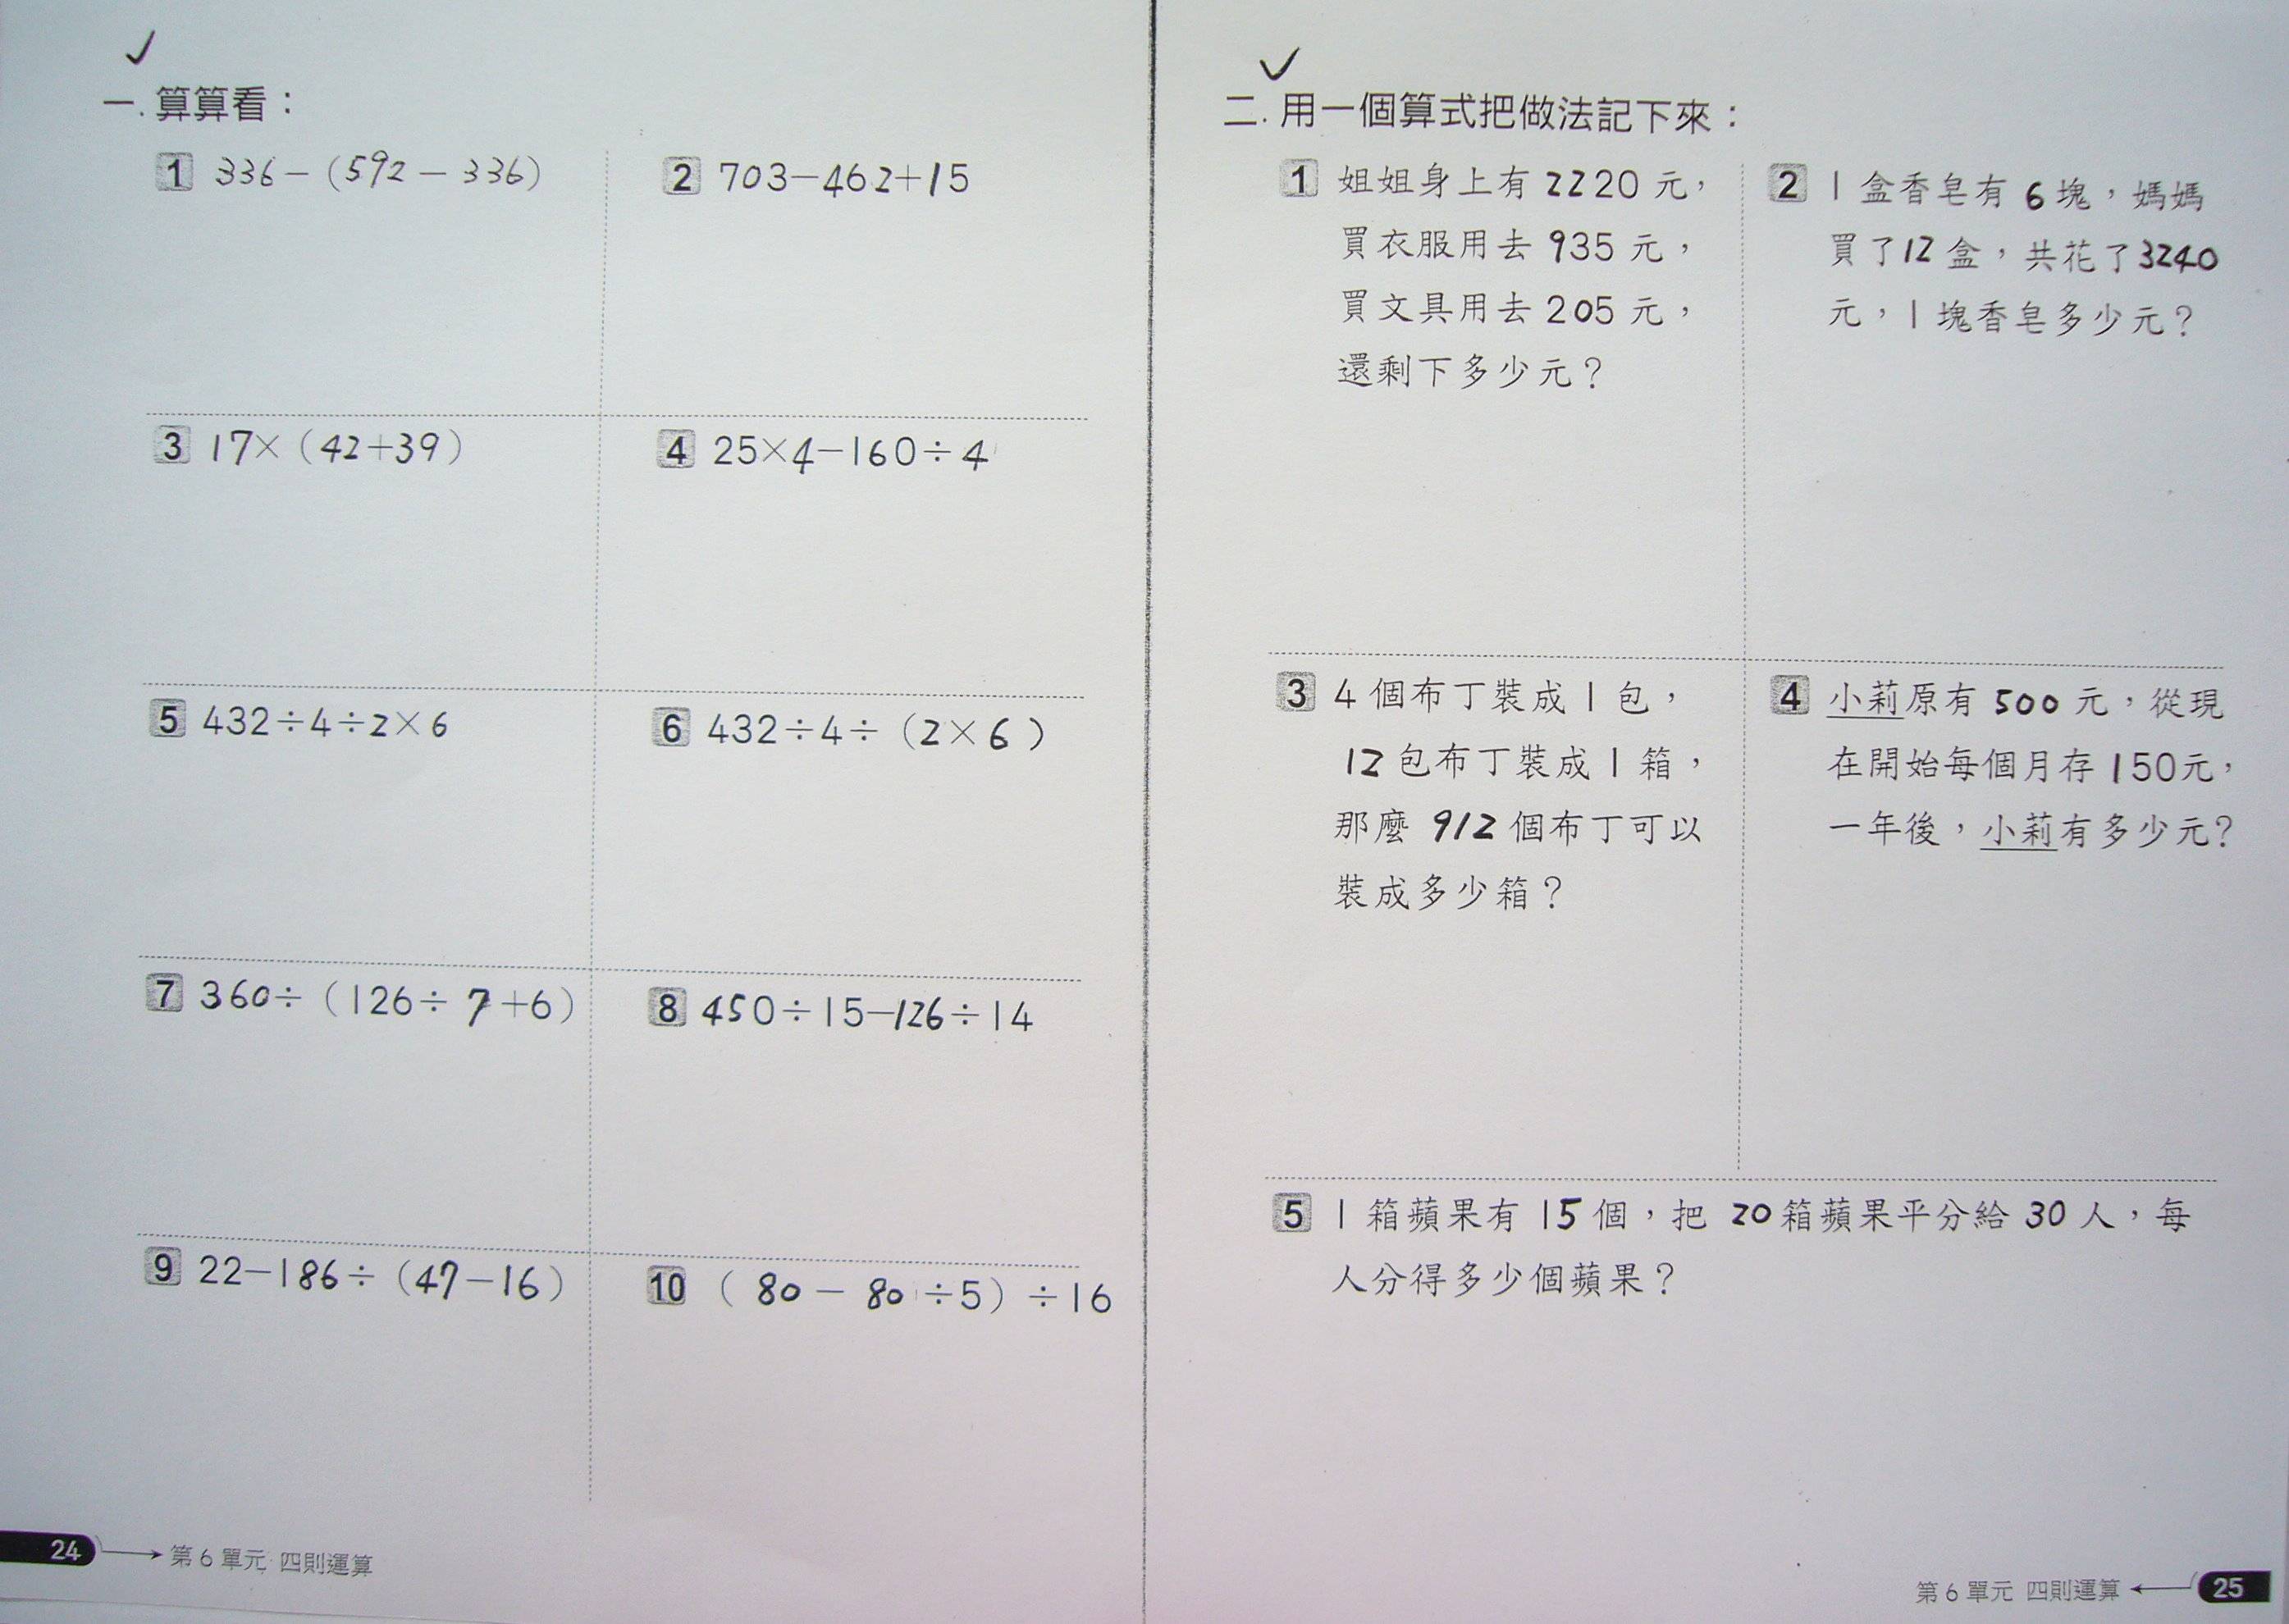 一. 算算看：
1 336－（592－336）
2 703－462＋15
3 17×（42＋39）
4 25×4－160÷4
5 432÷4÷2×6
6 432÷4÷（2×6）
7 360÷（126÷7＋6）
8 450÷15－126÷14
9 22－186÷（47－16）
10 （80－80÷5）÷16
24 第6單元 四則運算
二. 用一個算式把做法記下來：
1 姐姐身上有2220元，
買衣服用去935元，
買文具用去205元，
還剩下多少元？
2 1盒香皂有6塊，媽媽
買了12盒，共花了3240
元，1塊香皂多少元？
3 4個布丁裝成1包，
12包布丁裝成1箱，
那麼912個布丁可以
裝成多少箱？
4 小莉原有500元，從現
在開始每個月存150元，
一年後，小莉有多少元？
5 1箱蘋果有15個，把20箱蘋果平分給30人，每
人分得多少個蘋果？
第6單元 四則運算 25